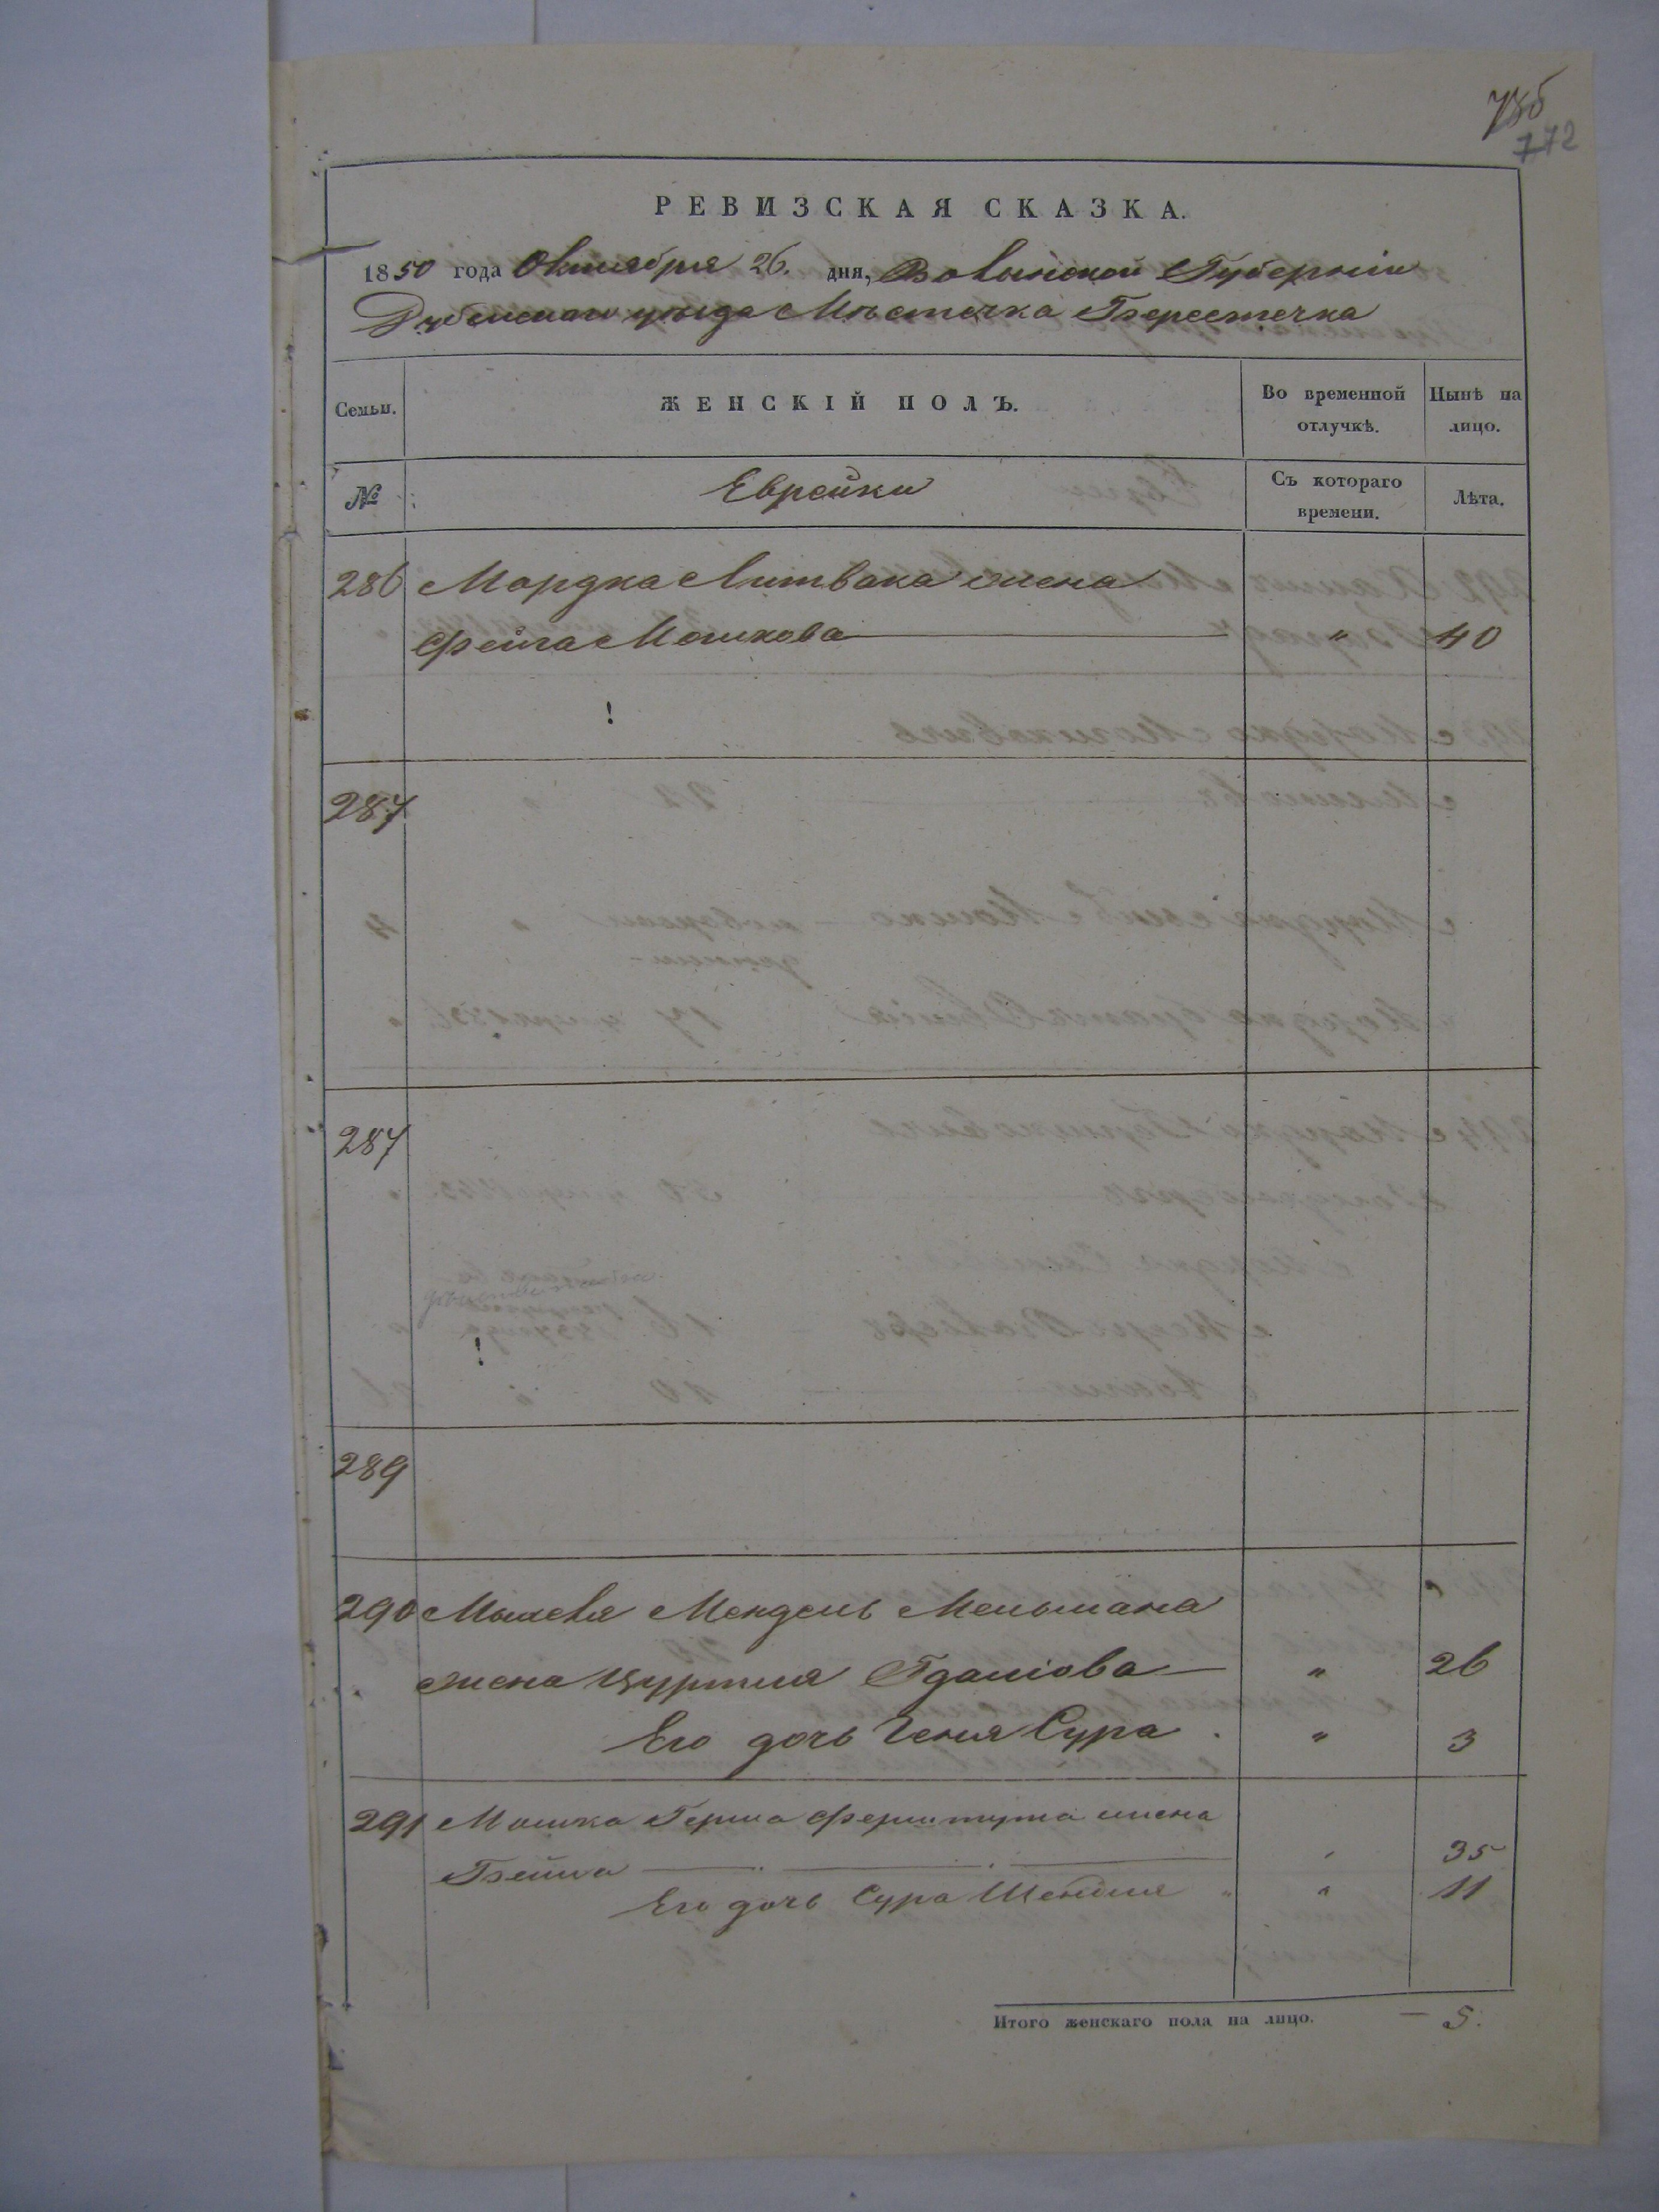 772
РЕВИЗСКАЯ СКАЗКА.
1850 года Октября 26. дня, Волынской Губерніи
Дубенскаго уѣзда Мѣстечка Берестечка
Семьи.
ЖЕНСКІЙ ПОЛЪ.
Во временной отлучкѣ.
Нынѣ на лицо.
№
Еврейки
Съ котораго времени.
Лѣта.
286 Мордка Литвака жена
Фейга Мошкова " 40
287
287
289
290 Мендель Мельмана
жена Цуртля " 26
Его дочь Геня Сура " 3
291 Мошка Герша жена
Бейла " 35
Его дочь Сура Шендля " 11
Итого женскаго пола на лицо. — 5.